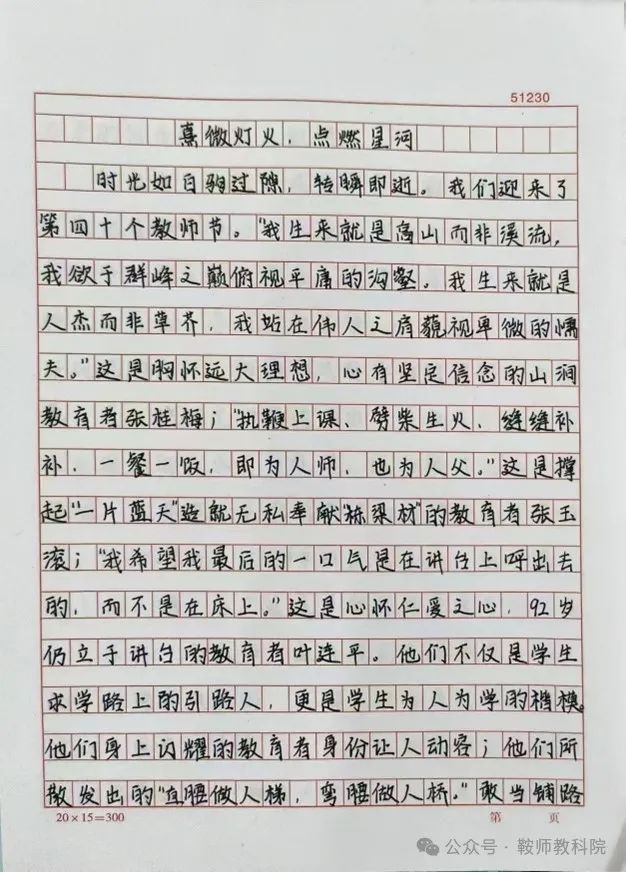 51230
熹微灯火,点燃星河
时光如白驹过隙,转瞬即逝。我们迎来了
第四十个教师节。"我生来就是高山而非溪流,
我欲于群峰之巅俯视平庸的沟壑。我生来就是
人杰而非草芥,我站在伟人之肩藐视卑微的懦
夫。"这是胸怀远大理想,心有坚定信念的山涧
教育者张桂梅;"执鞭上课、劈柴生火、缝缝补
补,一餐一饭,即为人师,也为人父。"这是撑
起"一片蓝天"造就无私奉献"栋梁材"的教育者张玉
滚;"我希望我最后的一口气是在讲台上呼出去
的,而不是在床上。"这是心怀仁爱之心,92岁
仍立于讲台的教育者叶连平。他们不仅是学生
求学路上的引路人,更是学生为人为学的楷模。
他们身上闪耀的教育者身份让人动容;他们所
散发出的"直腰做人梯,弯腰做人桥。"敢当铺路
20×15=300 第 页
公众号·鞍师教科院